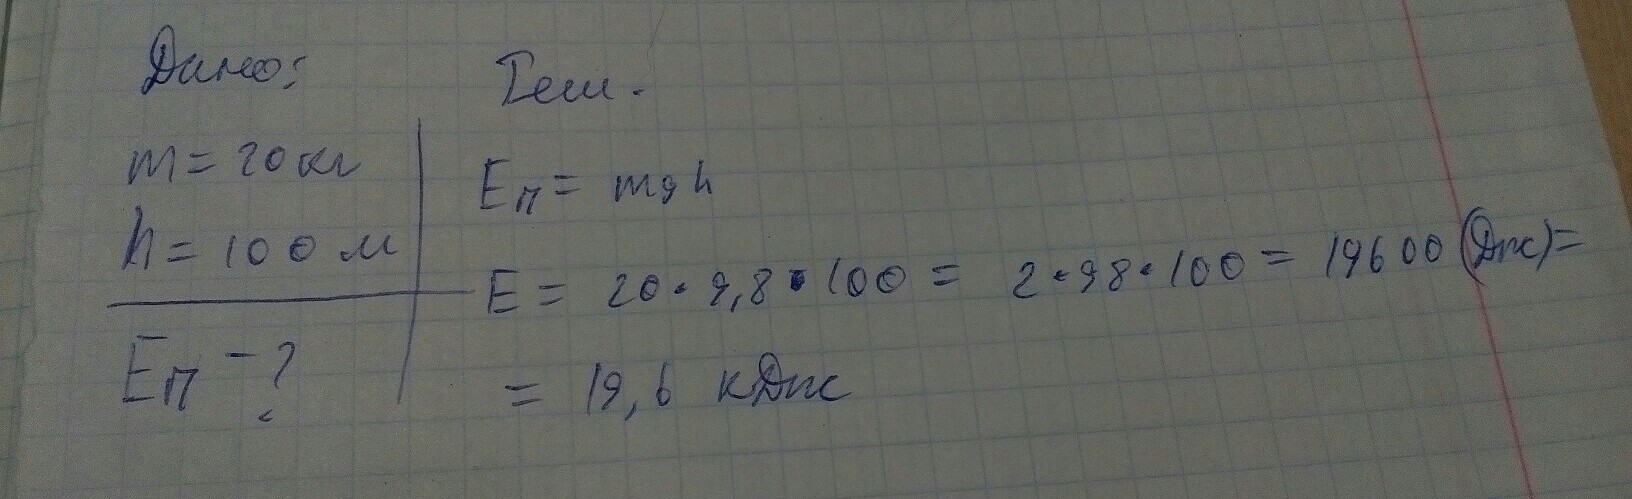 Дано:
Реш.
m = 20 кг
h = 100 м
Eп - ?
Eп = mgh
E = 20 · 9,8 · 100 = 2 · 98 · 100 = 19600 (Дж) =
= 19,6 кДж